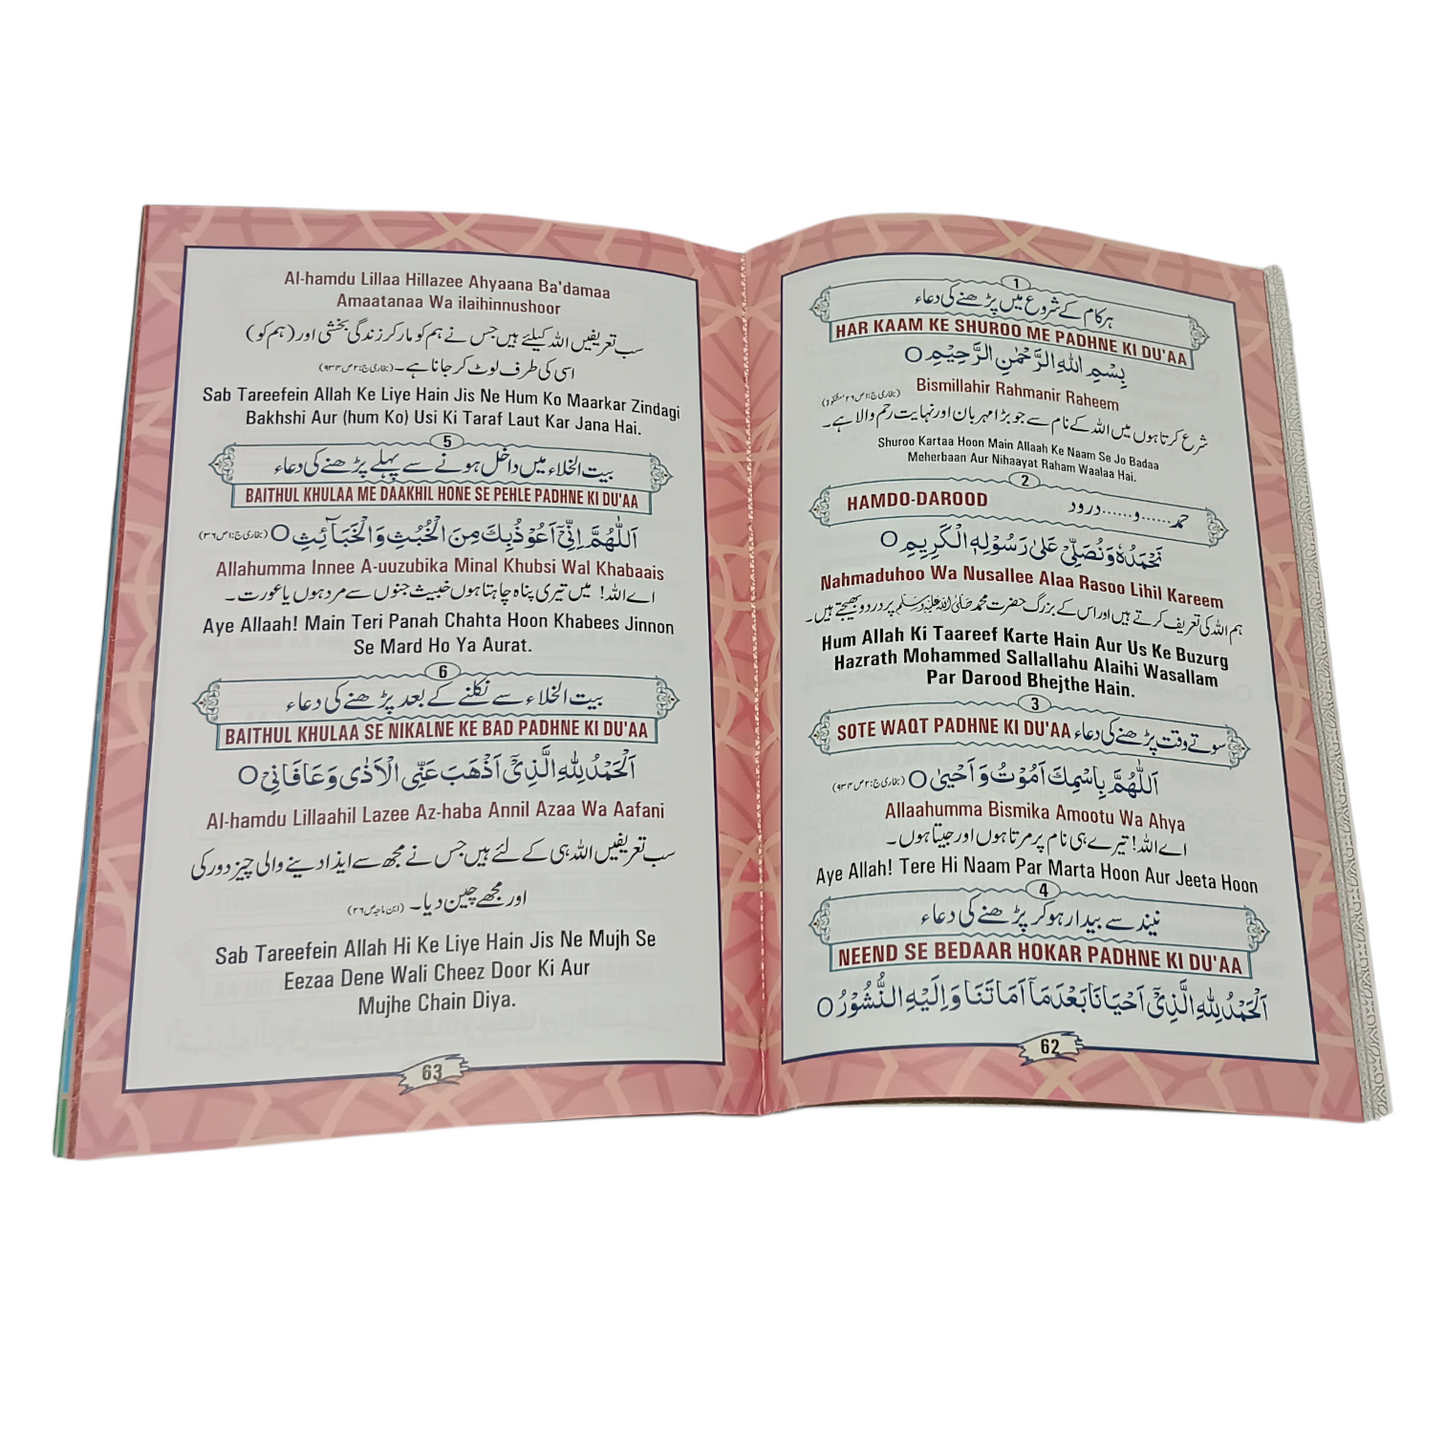 1
ہر کام کے شروع میں پڑھنے کی دعاء
HAR KAAM KE SHUROO ME PADHNE KI DU'AA
بِسْمِ اللّٰهِ الرَّحْمٰنِ الرَّحِيْمِ ○
Bismillahir Rahmanir Raheem
شرع کرتا ہوں میں اللہ کے نام سے جو بڑا مہربان اور نہایت رحم والا ہے۔
Shuroo Kartaa Hoon Main Allaah Ke Naam Se Jo Badaa
Meherbaan Aur Nihaayat Raham Waalaa Hai.
2
HAMDO-DAROOD حمد......و......درود
نَحْمَدُهٗ وَنُصَلِّيْ عَلٰى رَسُوْلِهِ الْكَرِيْمِ ○
Nahmaduhoo Wa Nusallee Alaa Rasoo Lihil Kareem
ہم اللہ کی تعریف کرتے ہیں اور اس کے بزرگ حضرت محمد صلی اللہ علیہ وسلم پر درود بھیجتے ہیں۔
Hum Allah Ki Taareef Karte Hain Aur Us Ke Buzurg
Hazrath Mohammed Sallallahu Alaihi Wasallam
Par Darood Bhejthe Hain.
3
SOTE WAQT PADHNE KI DU'AA سوتے وقت پڑھنے کی دعاء
اَللّٰهُمَّ بِاسْمِكَ اَمُوْتُ وَاَحْيٰى ○ (بخاری ج:۲ ص ۹۳۴)
Allaahumma Bismika Amootu Wa Ahya
اے اللہ! تیرے ہی نام پر مرتا ہوں اور جیتا ہوں۔
Aye Allah! Tere Hi Naam Par Marta Hoon Aur Jeeta Hoon
4
نیند سے بیدار ہوکر پڑھنے کی دعاء
NEEND SE BEDAAR HOKAR PADHNE KI DU'AA
اَلْحَمْدُ لِلّٰهِ الَّذِيْٓ اَحْيَانَا بَعْدَ مَآ اَمَاتَنَا وَاِلَيْهِ النُّشُوْرُ ○
62
Al-hamdu Lillaa Hillazee Ahyaana Ba'damaa
Amaatanaa Wa ilaihinnushoor
سب تعریفیں اللہ کیلئے ہیں جس نے ہم کو مار کر زندگی بخشی اور (ہم کو)
اسی کی طرف لوٹ کر جانا ہے۔ (بخاری ج:۲ ص ۹۳۴)
Sab Tareefein Allah Ke Liye Hain Jis Ne Hum Ko Maarkar Zindagi
Bakhshi Aur (hum Ko) Usi Ki Taraf Laut Kar Jana Hai.
5
بیت الخلاء میں داخل ہونے سے پہلے پڑھنے کی دعاء
BAITHUL KHULAA ME DAAKHIL HONE SE PEHLE PADHNE KI DU'AA
اَللّٰهُمَّ اِنِّيْٓ اَعُوْذُبِكَ مِنَ الْخُبُثِ وَالْخَبَآئِثِ ○ (بخاری ج:۱ ص ۳۶)
Allahumma Innee A-uuzubika Minal Khubsi Wal Khabaais
اے اللہ! میں تیری پناہ چاہتا ہوں خبیث جنوں سے مرد ہوں یا عورت۔
Aye Allaah! Main Teri Panah Chahta Hoon Khabees Jinnon
Se Mard Ho Ya Aurat.
6
بیت الخلاء سے نکلنے کے بعد پڑھنے کی دعاء
BAITHUL KHULAA SE NIKALNE KE BAD PADHNE KI DU'AA
اَلْحَمْدُ لِلّٰهِ الَّذِيْٓ اَذْهَبَ عَنِّى الْاَذٰى وَعَافَانِيْ ○
Al-hamdu Lillaahil Lazee Az-haba Annil Azaa Wa Aafani
سب تعریفیں اللہ ہی کے لئے ہیں جس نے مجھ سے ایذا دینے والی چیز دور کی
اور مجھے چین دیا۔ (ابن ماجہ ص ۲۶)
Sab Tareefein Allah Hi Ke Liye Hain Jis Ne Mujh Se
Eezaa Dene Wali Cheez Door Ki Aur
Mujhe Chain Diya.
63